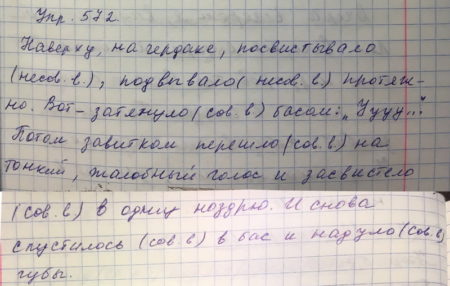 Упр. 572
Наверху, на чердаке, посвистывало
(несов. в.), подвывало (несов. в) протяж-
но. Вот- затянуло (сов. в) басом: „Уууу..."
Потом завитком перешло (сов. в) на
тонкий, жалобный голос и засвистело
(сов. в) в одну ноздрю. И снова
спустилось (сов. в) в бас и надуло (сов. в)
губы.